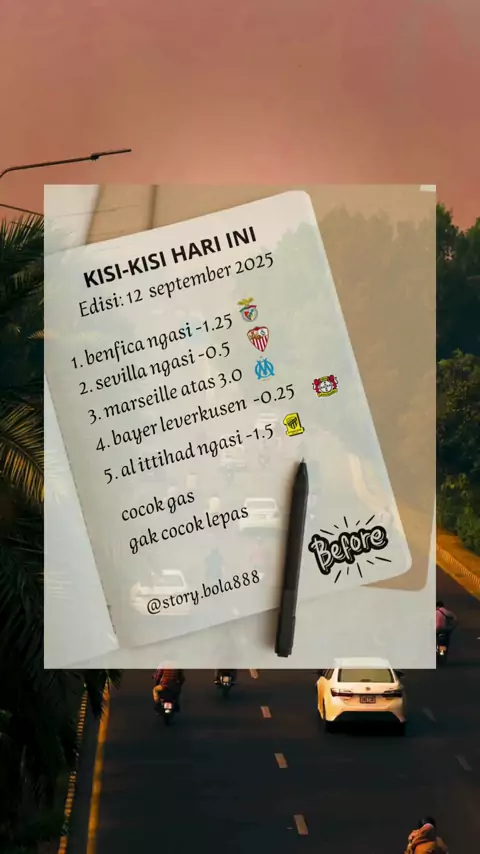 KISI-KISI HARI INI
Edisi: 12 september 2025
1. benfica ngasi -1.25
2. sevilla ngasi -0.5
3. marseille atas 3.0
4. bayer leverkusen -0.25
5. al ittihad ngasi -1.5
cocok gas
gak cocok lepas
Before
@story.bola888